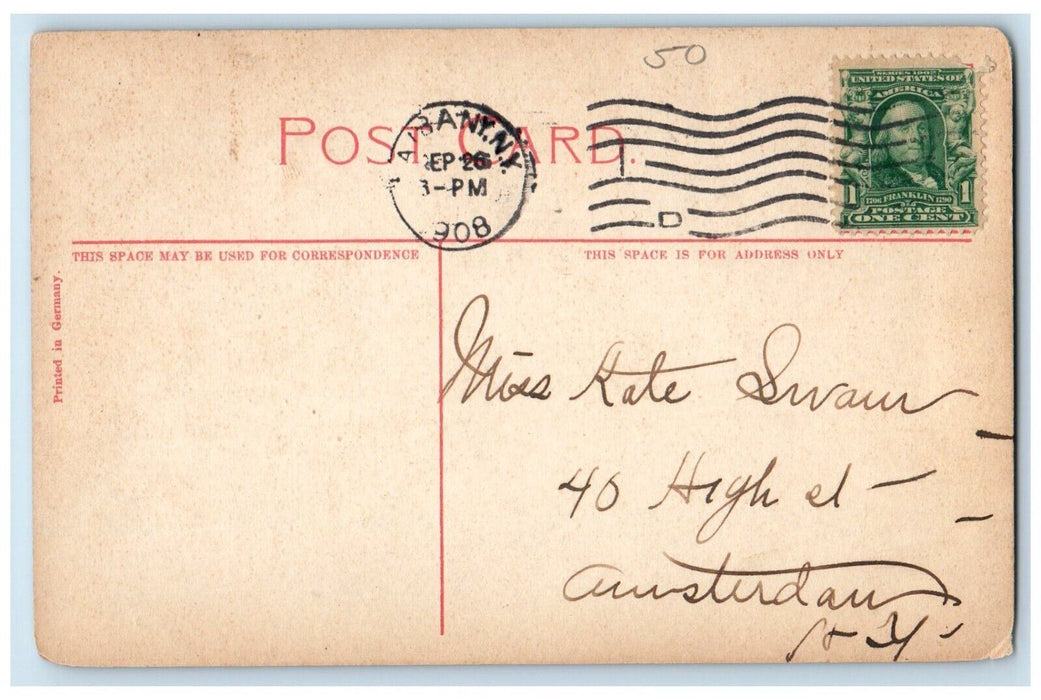 50
POST CARD.
ALBANY, N.Y.
SEP 26
3-PM
1908
D
SERIES 1902
UNITED STATES OF
AMERICA
1 1
1706 FRANKLIN 1790
POSTAGE
ONE CENT
THIS SPACE MAY BE USED FOR CORRESPONDENCE
THIS SPACE IS FOR ADDRESS ONLY
Printed in Germany.
Miss Kate Swann
40 High st –
Amsterdam
N Y.